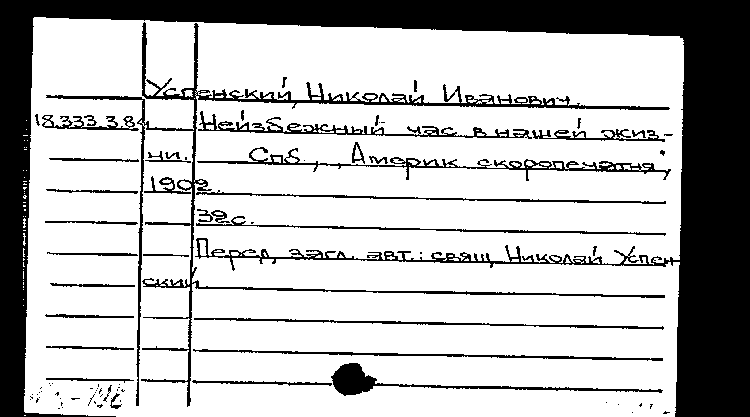 Успенский, Николай Иванович.
18.333.3.84 Неизбежный час в нашей жиз-
ни. Спб, „Америк скоропечатня",
1902.
32с.
Перед загл. авт.: свящ Николай Успен-
ский